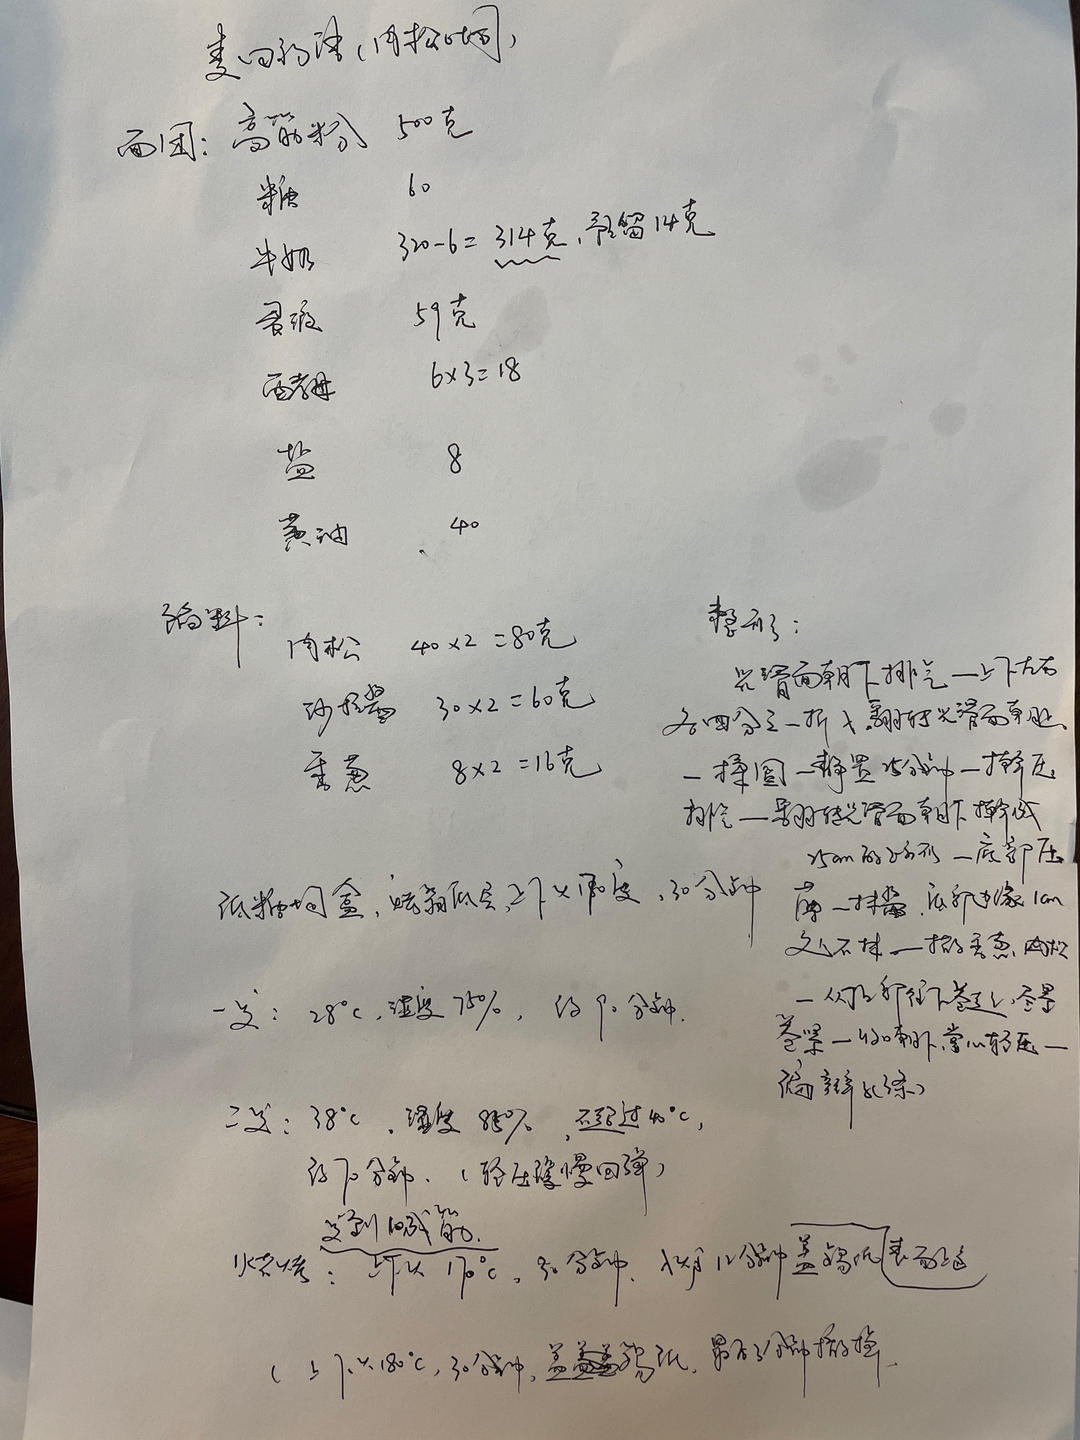 面团：高筋粉 500克
糖 60
牛奶 320-6=314克，预留14克
蛋液 59克
酵母 6×3=18
盐 8
黄油 40
馅料：
肉松 40×2=80克
沙拉酱 30×2=60克
香葱 8×2=16克
整形：
光滑面朝下排气—上下左右
各四分之一折 翻转光滑面朝上
—揉圆—静置15分钟—擀压
排气—翻转光滑面朝下擀成
25cm的 —底部压
薄—抹酱，底部边缘1cm
不抹—撒香葱，肉松
—从上部往下卷起，尽量
卷紧—收口朝下，掌心轻压—
编辫
低糖 盒，烤箱底层，上下火 度，30分钟
一发：28℃，湿度75%，约90分钟.
二发：38℃，湿度85%，不超过40℃，
约70分钟.（轻压缓慢回弹）
发到
烘烤：上下火170℃，30分钟. 12分钟盖锡纸
（上下火180℃，30分钟，盖锡纸，最后3分钟撤掉